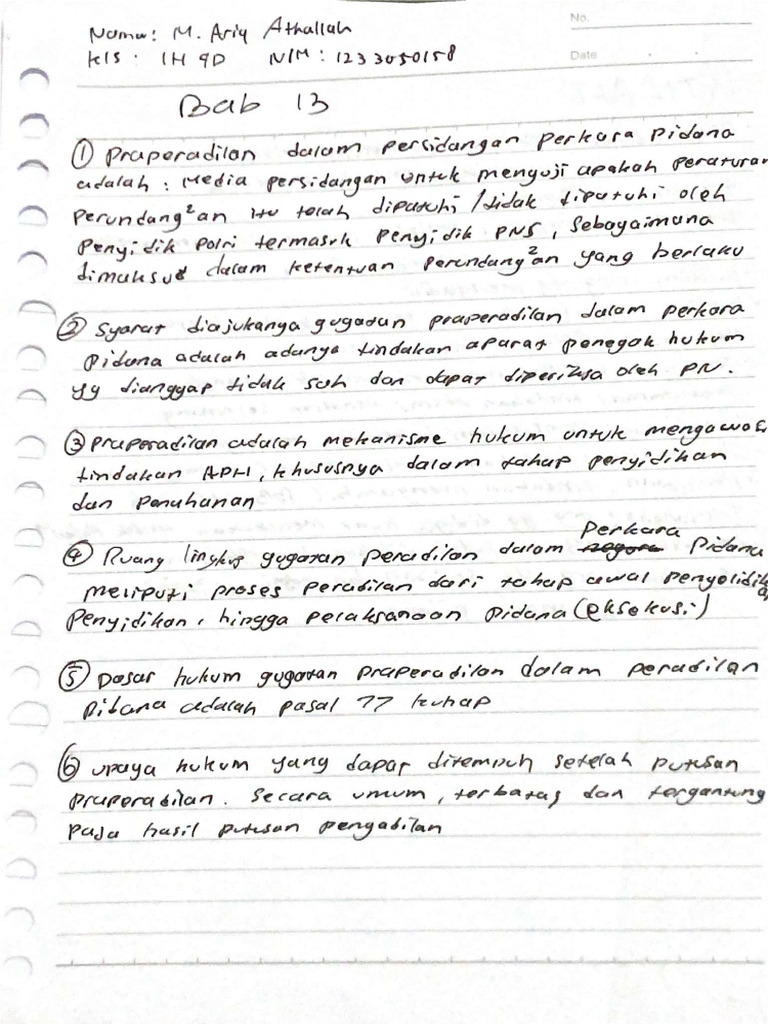 No.
Nama: M. Ariq Athallah
Date
Kls : IH 9D NIM : 1233050158
Bab 13
① Praperadilan dalam persidangan perkara pidana
adalah : Media persidangan untuk menguji apakah peraturan
perundang²an itu telah dipatuhi / tidak dipatuhi oleh
penyidik polri termasuk penyidik PNS, sebagaimana
dimaksud dalam ketentuan perundang²an yang berlaku
② Syarat diajukanya gugatan praperadilan dalam perkara
pidana adalah adanya tindakan aparat penegak hukum
yg dianggap tidak sah dan dapat diperiksa oleh PN.
③ Praperadilan adalah mekanisme hukum untuk mengawas
tindakan APH, khususnya dalam tahap penyidikan
dan penahanan
④ Ruang lingkup gugatan peradilan dalam perkara pidana
meliputi proses peradilan dari tahap awal penyelidikan
Penyidikan, hingga pelaksanaan pidana (eksekusi)
⑤ Dasar hukum gugatan praperadilan dalam peradilan
pidana adalah pasal 77 kuhap
⑥ upaya hukum yang dapat ditempuh setelah putusan
praperadilan. Secara umum, terbatas dan tergantung
pada hasil putusan pengadilan